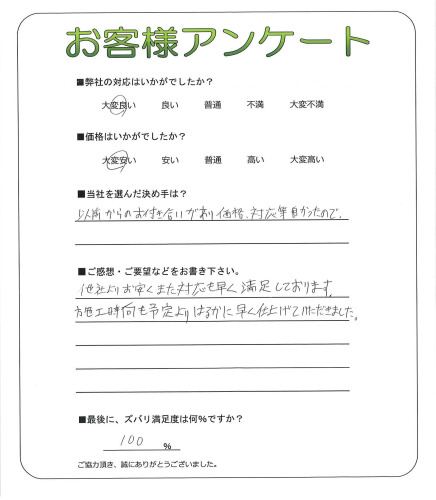 お客様アンケート
■弊社の対応はいかがでしたか？
大変良い 良い 普通 不満 大変不満
■価格はいかがでしたか？
大変安い 安い 普通 高い 大変高い
■当社を選んだ決め手は？
以前からのお付き合いがあり価格、対応等良かったので。
■ご感想・ご要望などをお書き下さい。
他社よりお安くまた対応も早く満足しております。
施工時間も予定よりはるかに早く仕上げていただきました。
■最後に、ズバリ満足度は何%ですか？
100 %
ご協力頂き、誠にありがとうございました。